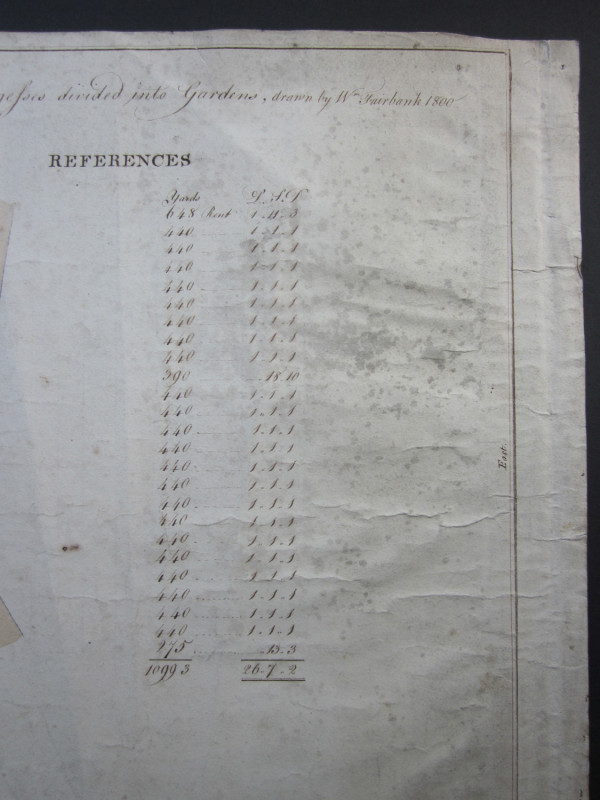 esses divided into Gardens, drawn by Wm Fairbank 1800
REFERENCES
Yards L. S. D
648 Rent 1-11-3
440 1-1-1
440 1-1-1
440 1-1-1
440 1-1-1
440 1-1-1
440 1-1-1
440 1-1-1
440 1-1-1
390 18-10
440 1-1-1
440 1-1-1
440 1-1-1
440 1-1-1
440 1-1-1
440 1-1-1
440 1-1-1
440 1-1-1
440 1-1-1
440 1-1-1
440 1-1-1
440 1-1-1
440 1-1-1
440 1-1-1
275 13-3
10993 26-7-2
East